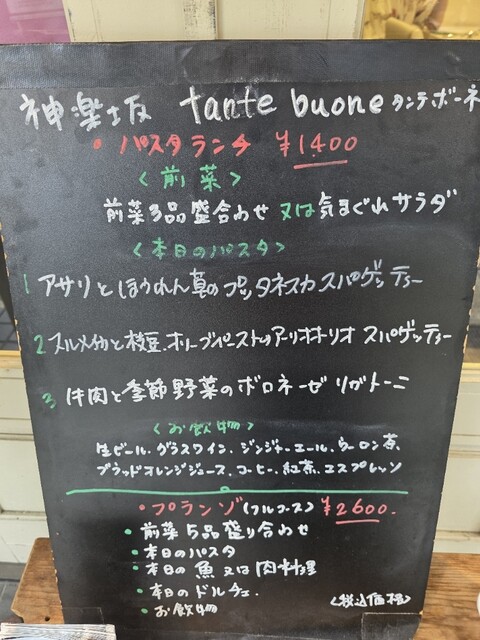 神楽坂 tante buone タンテ・ボーネ
・パスタランチ ¥1400
<前菜>
前菜3品盛合わせ 又は気まぐれサラダ
<本日のパスタ>
1 アサリとほうれん草のプッタネスカ スパゲッティー
2 スルメイカと枝豆、オリーブペーストのアーリオオーリオ スパゲッティー
3 牛肉と季節野菜のボロネーゼ リガトーニ
<お飲物>
生ビール、グラスワイン、ジンジャーエール、ウーロン茶、
ブラッドオレンジジュース、コーヒー、紅茶、エスプレッソ
・プランゾ(フルコース) ¥2600.
・前菜5品盛り合わせ
・本日のパスタ
・本日の魚又は肉料理
・本日のドルチェ.
・お飲物
<税込価格>